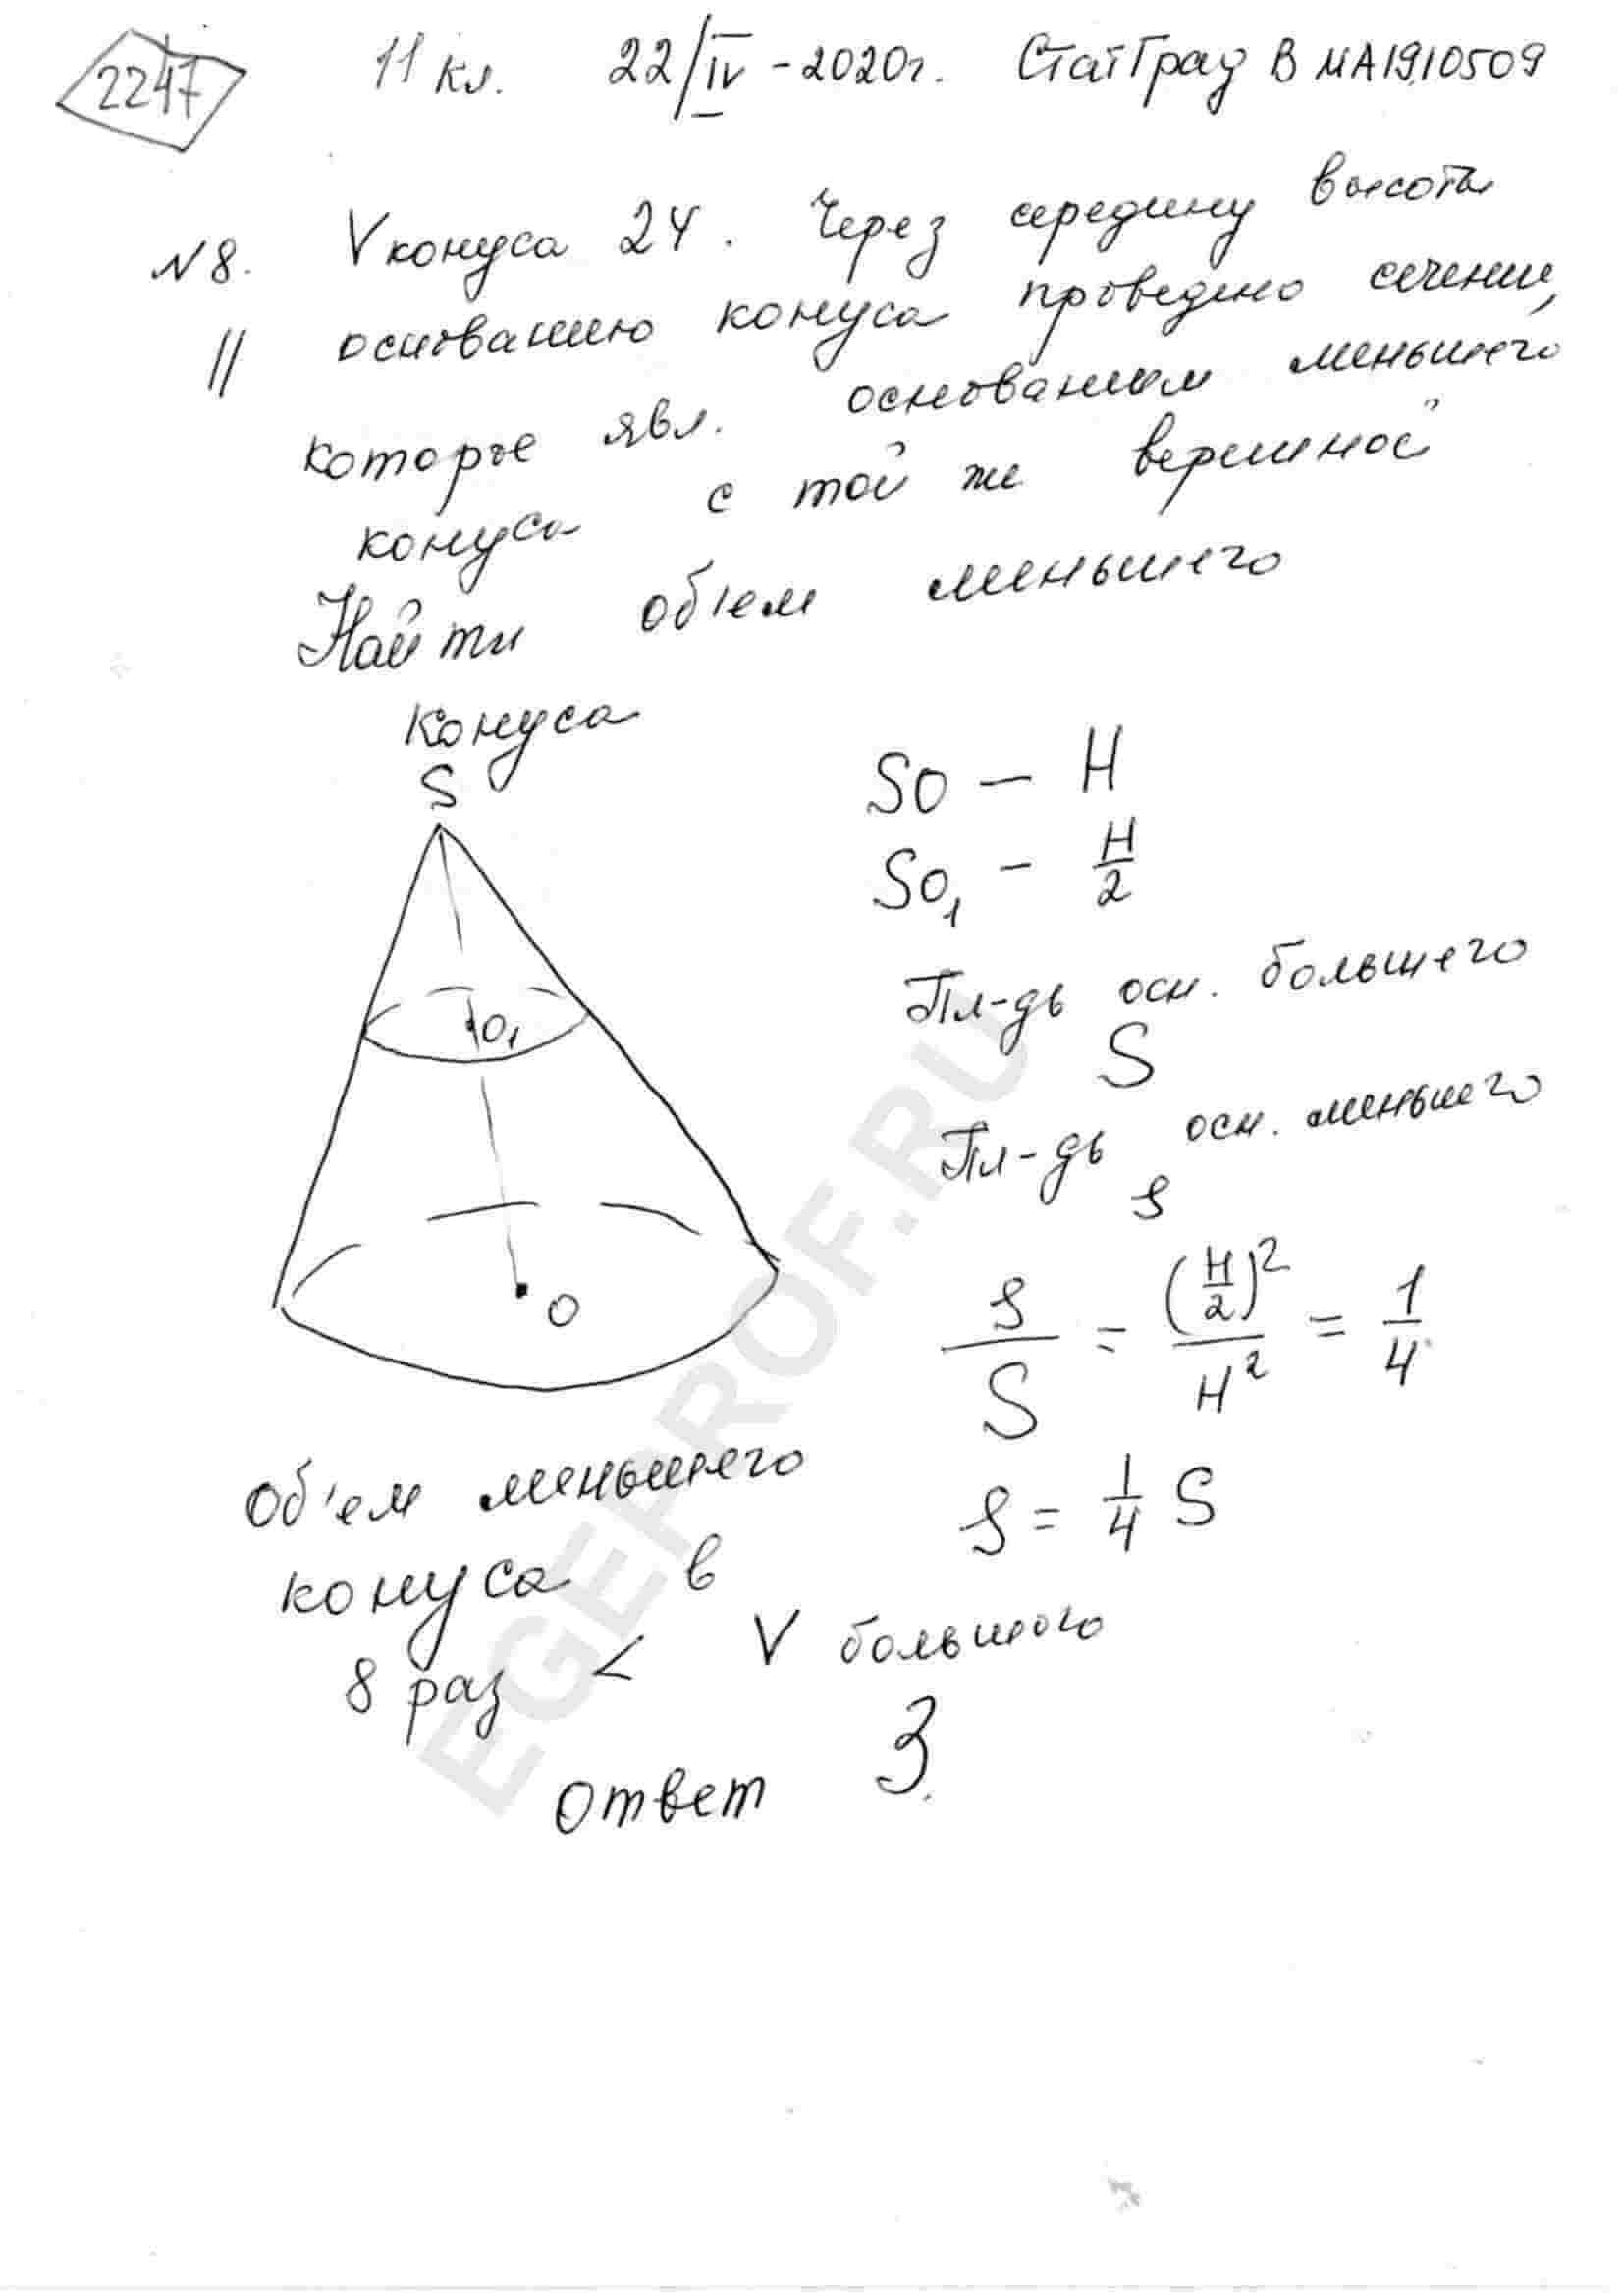 2247 11 кл. 22/IV - 2020г. СтатГрад В МА1910509
№8. V конуса 24. Через середину высоты
|| основанию конуса проведено сечение,
которое явл. основанием меньшего
конуса с той же вершиной
Найти об'ем меньшего
конуса
S
SO - H
SO₁ - H/2
O₁
Пл-дь осн. большего
S
Пл-дь осн. меньшего
s
O
s/S = (H/2)²/H² = 1/4
s = 1/4 S
Об'ем меньшего
конуса в
8 раз < V большого
Ответ 3.
EGEPROF.RU